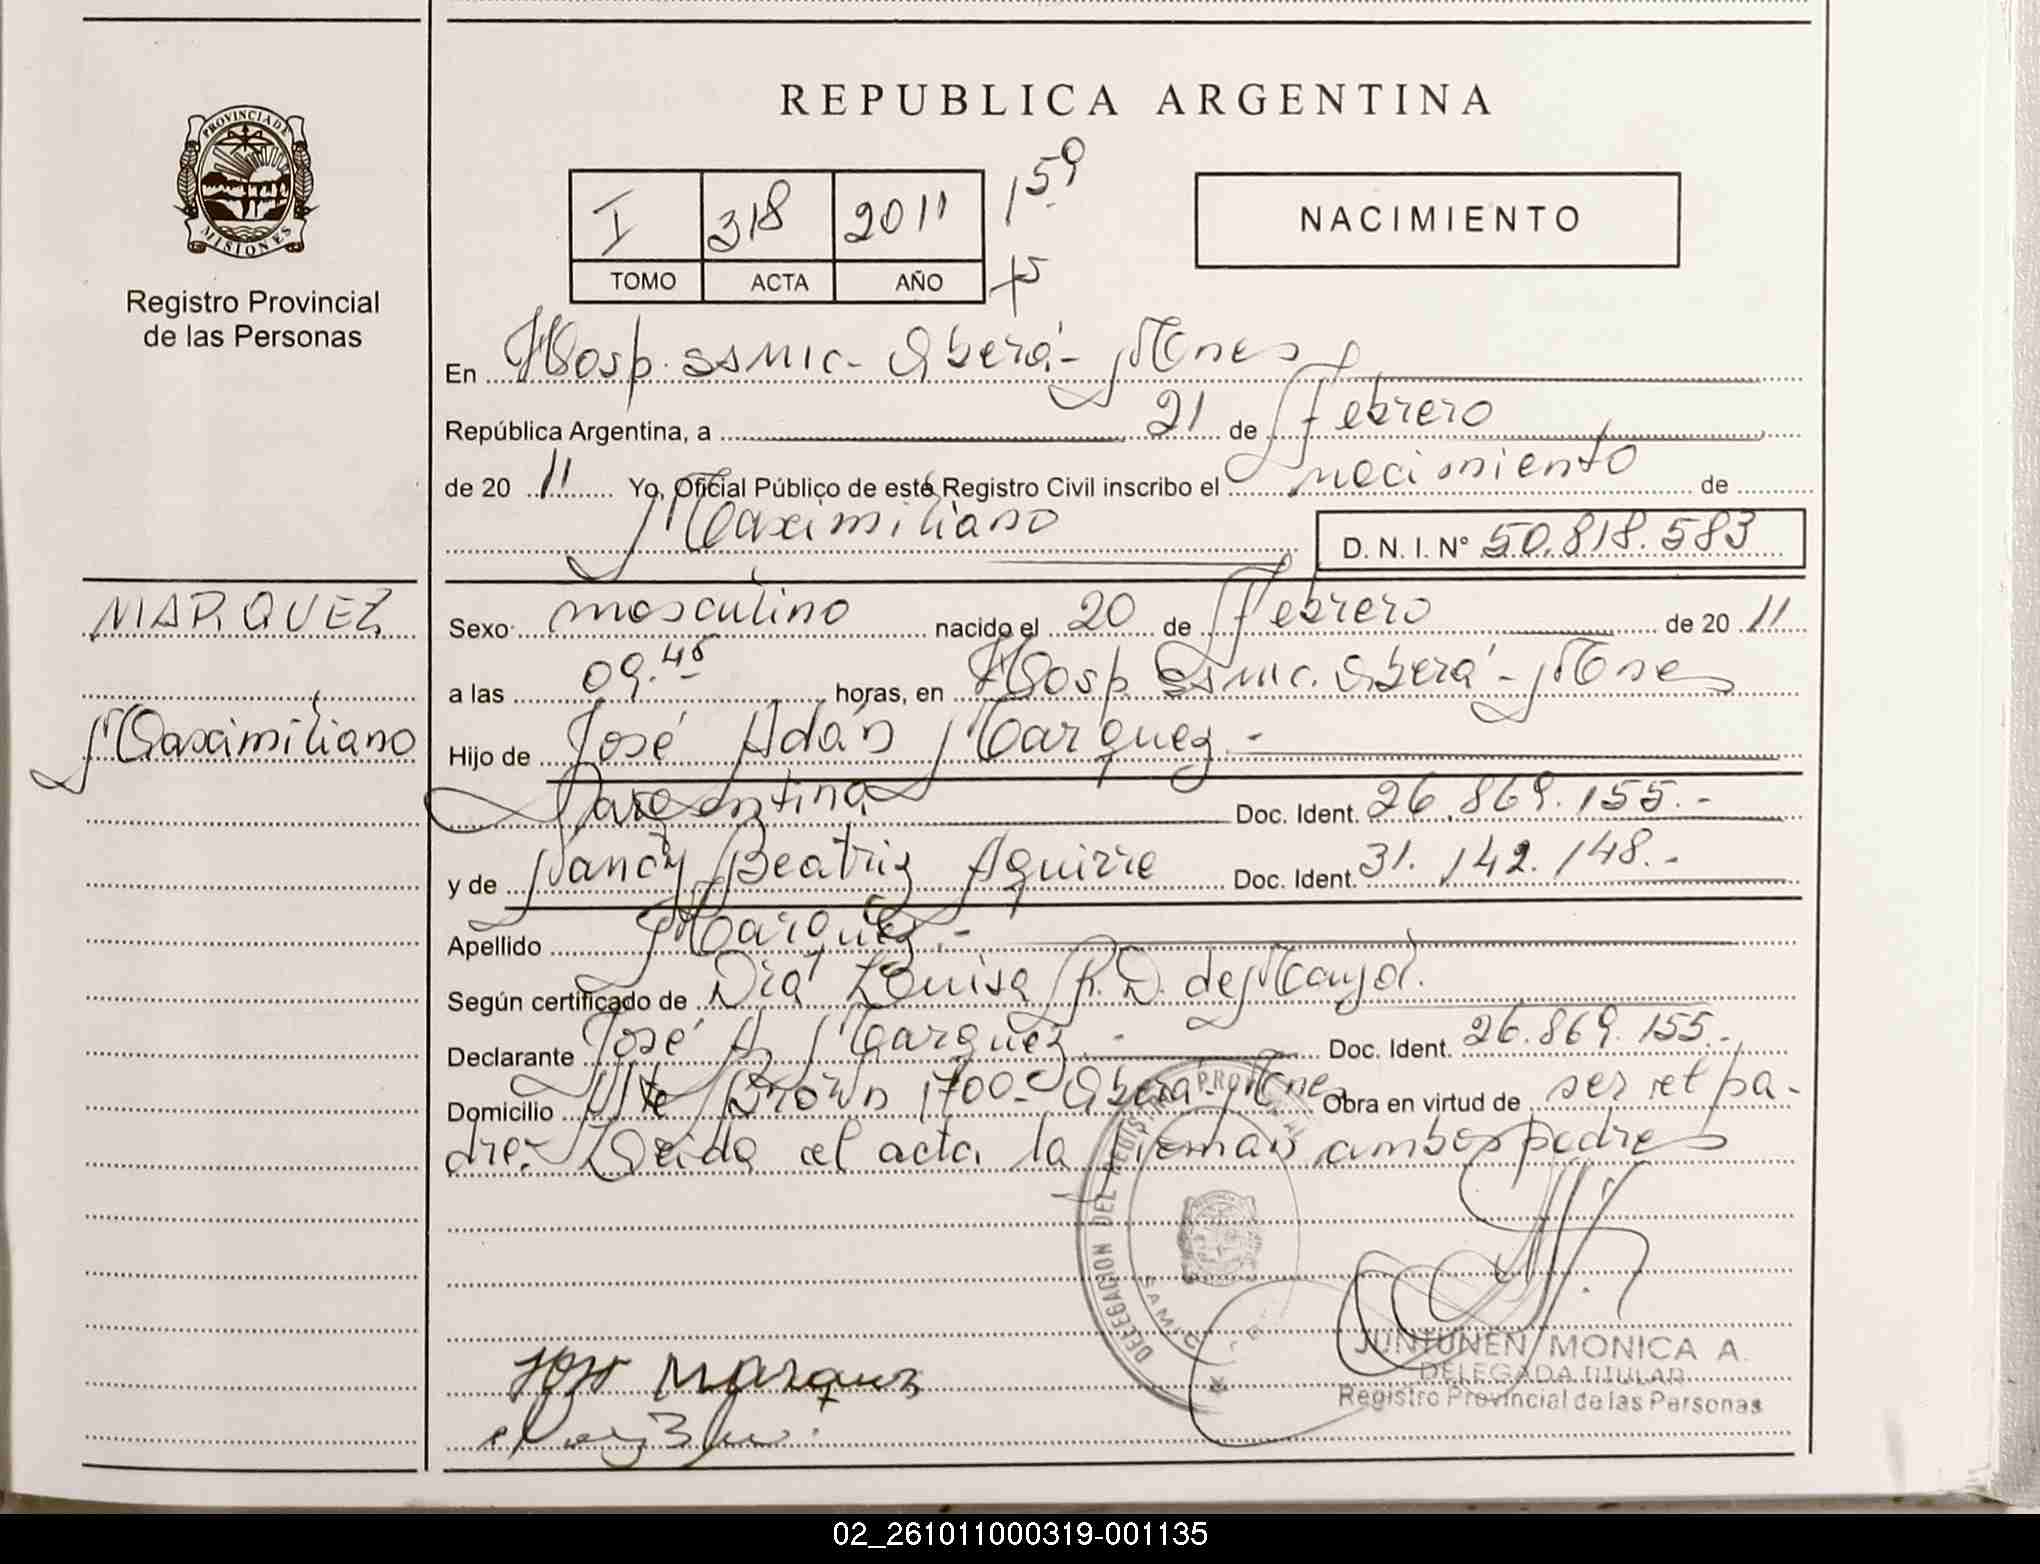 REPUBLICA ARGENTINA
PROVINCIA DE
MISIONES
Registro Provincial
de las Personas
I 318 2011 159
TOMO ACTA AÑO
NACIMIENTO
En Hosp. SAMIC - Oberá - Mnes
República Argentina, a 21 de Febrero
de 20 11 Yo, Oficial Público de este Registro Civil inscribo el nacimiento de
Maximiliano D. N. I. N° 50.818.583
MARQUEZ
Maximiliano
Sexo masculino nacido el 20 de Febrero de 20 11
a las 09.45 horas, en Hosp SAMIC. Oberá - Mnes
Hijo de José Adán Marquez.-
Argentina Doc. Ident. 26.869.155.-
y de Nancy Beatriz Aguirre Doc. Ident. 31.142.148.-
Apellido Marquez.-
Según certificado de Dra Louisa R. D. de Mayol.
Declarante José A. Marquez.- Doc. Ident. 26.869.155.-
Domicilio Alte Brown 1700 - Oberá - Mnes Obra en virtud de ser el pa-
dre.- Leida el acta la firman ambos padres
DELEGACION DEL REGISTRO PROVINCIAL
SAMIC
José Marquez
JUNTUNEN MONICA A.
DELEGADA TITULAR
Registro Provincial de las Personas
02_261011000319-001135